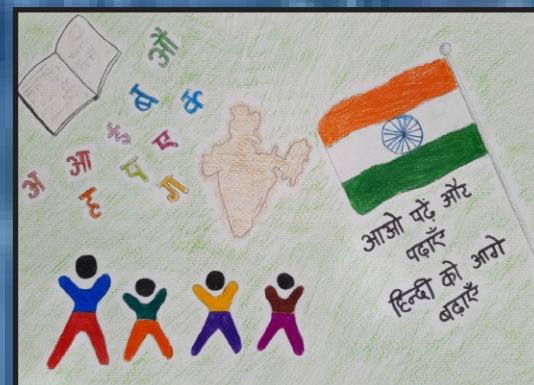 ओ
ब क
ड ए
अ आ प ग
ह
आओ पढ़ें और
पढ़ाएँ
हिन्दी को आगे
बढ़ाएँ